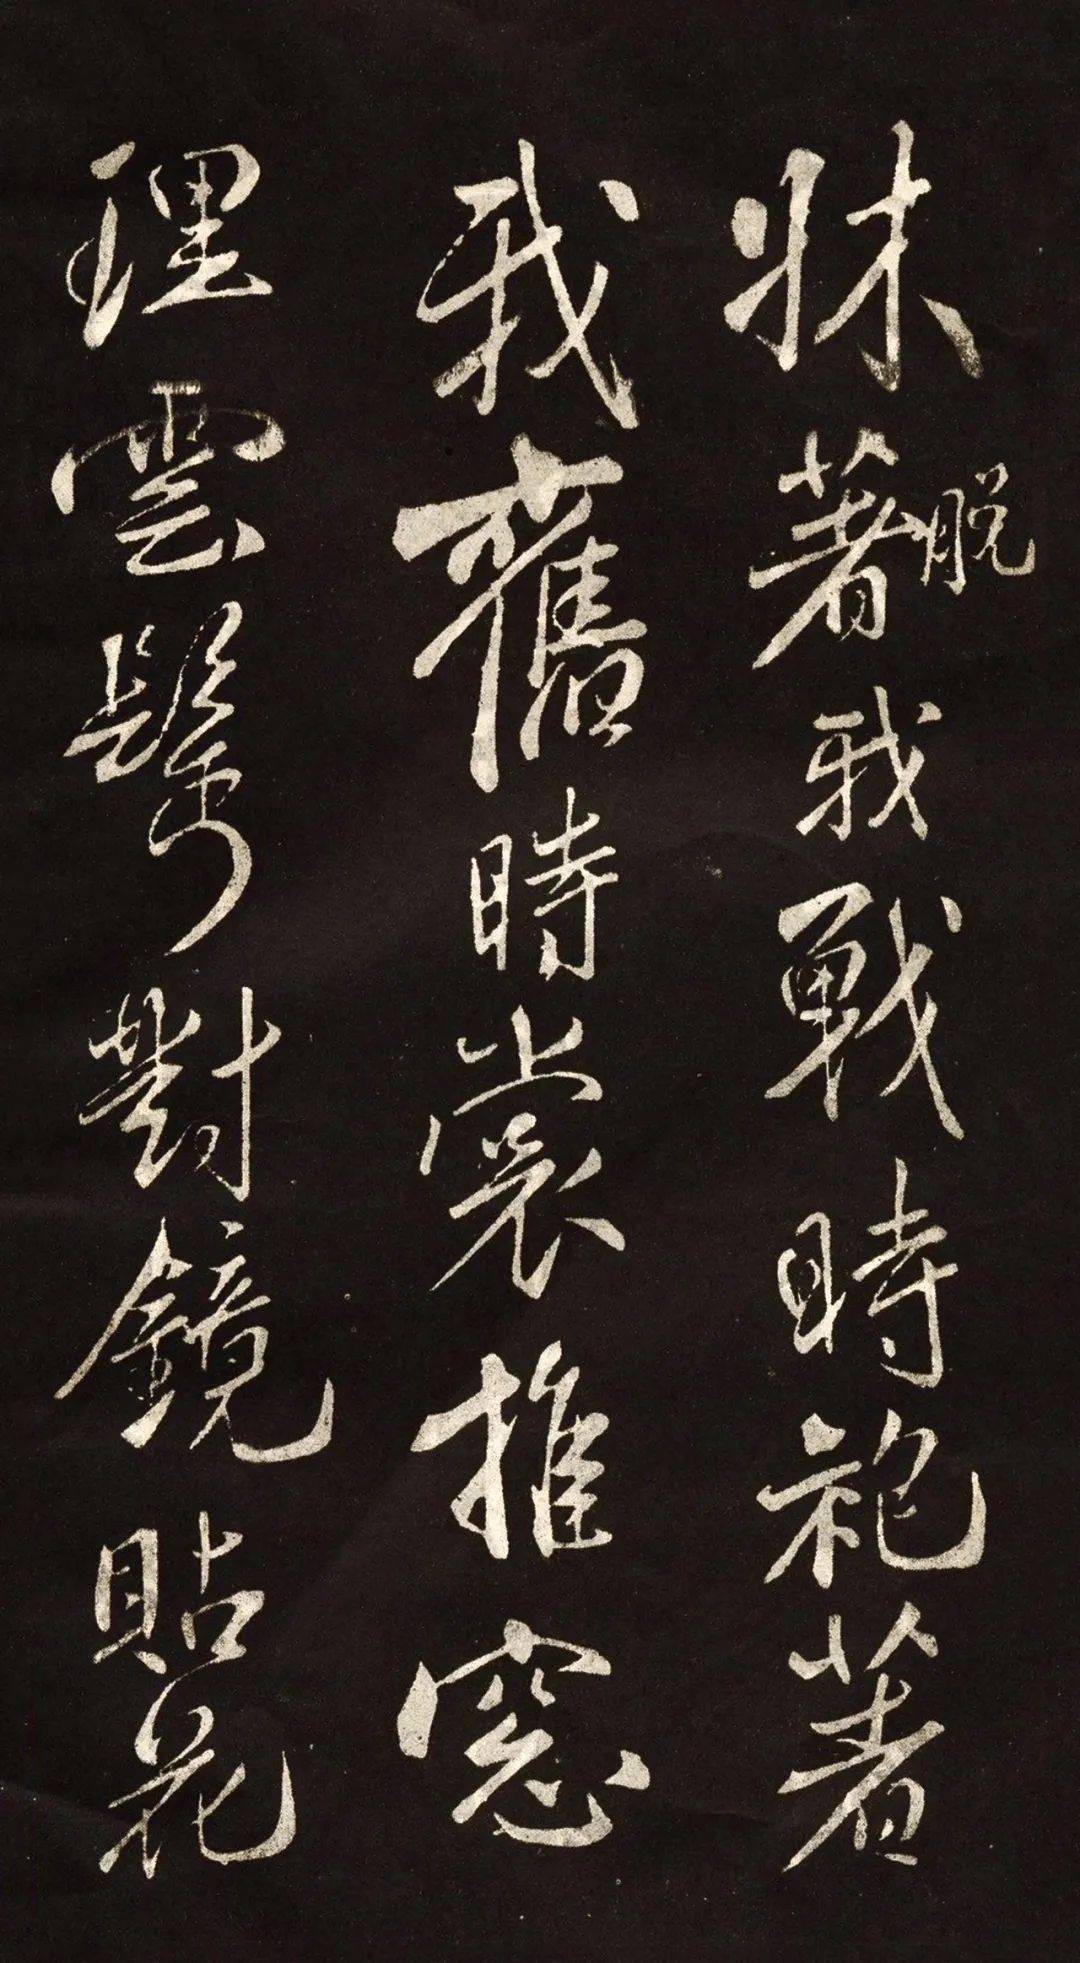 牀著脫我戰時袍著
我舊時裳推窓
理雲鬢對鏡貼花